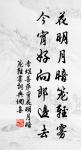 花明月暗笼轻雾
今宵好向郎边去
李煜菩萨蛮花明月暗
笼轻雾词典词集